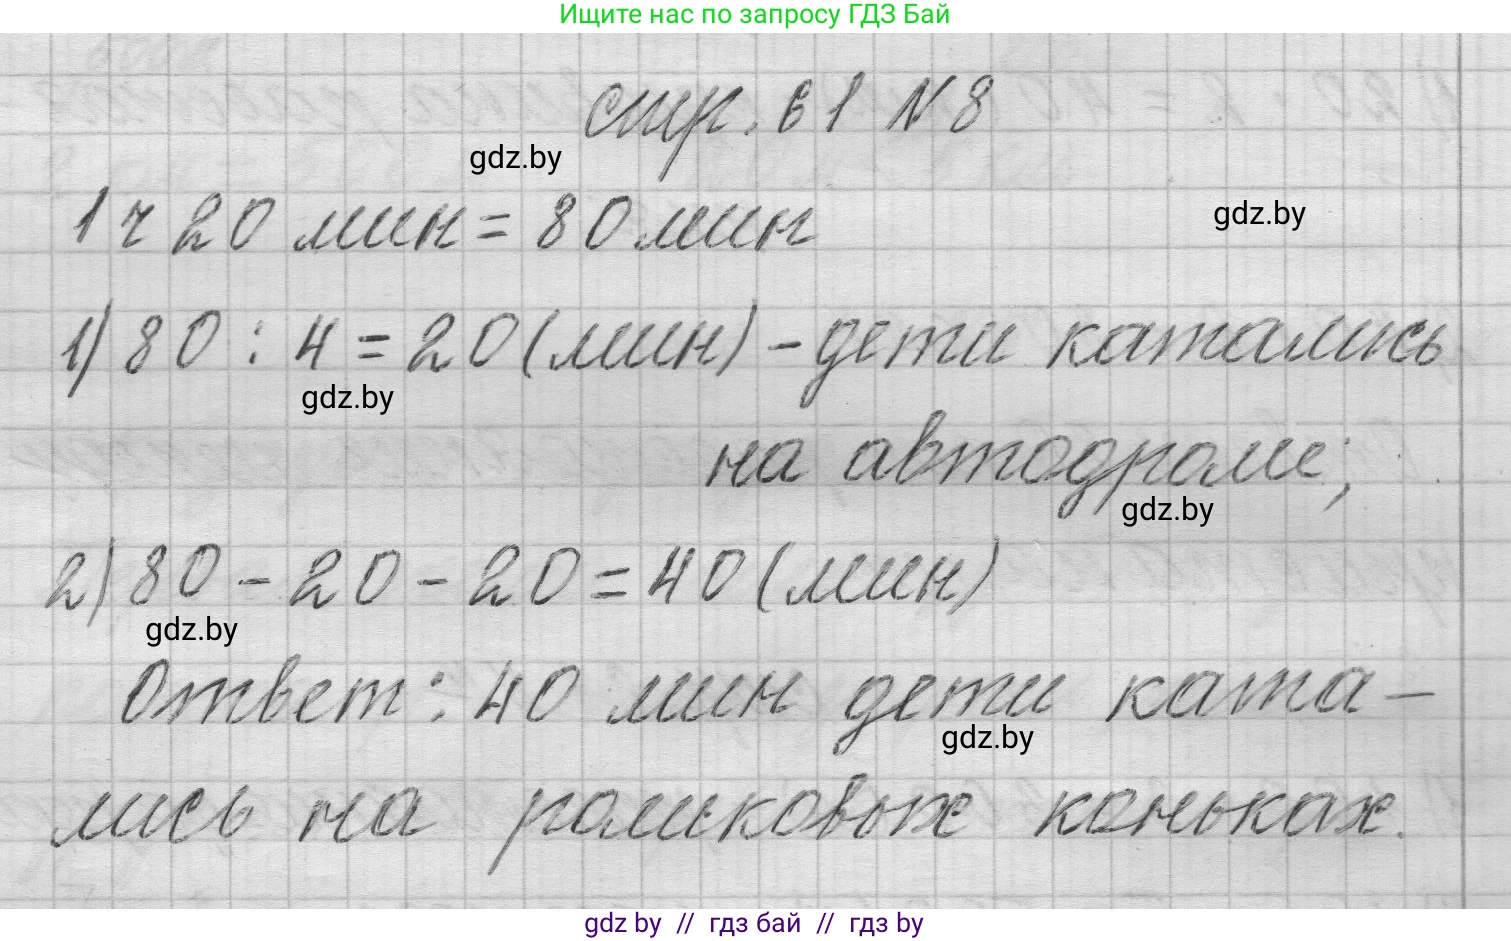 Ищите нас по запросу ГДЗ Бай
стр. 61 N 8
gdz.by
1 ч 20 мин = 80 мин
gdz.by
1) 80 : 4 = 20 (мин) - дети катались
gdz.by
на автодроме;
gdz.by
2) 80 - 20 - 20 = 40 (мин)
gdz.by
Ответ: 40 мин дети ката-
gdz.by
лись на роликовых коньках.
gdz by // гдз бай // гдз by